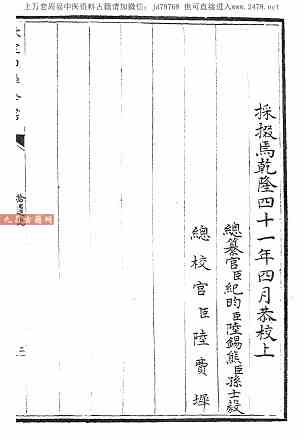 上万套周易中医资料古籍请加微信: jd79769 也可直接进入www.2478.net/
採掇焉乾隆四十一年四月恭校上
總纂官臣紀昀臣陸錫熊臣孫士毅
總校官臣陸費墀
九鼎古籍网
三